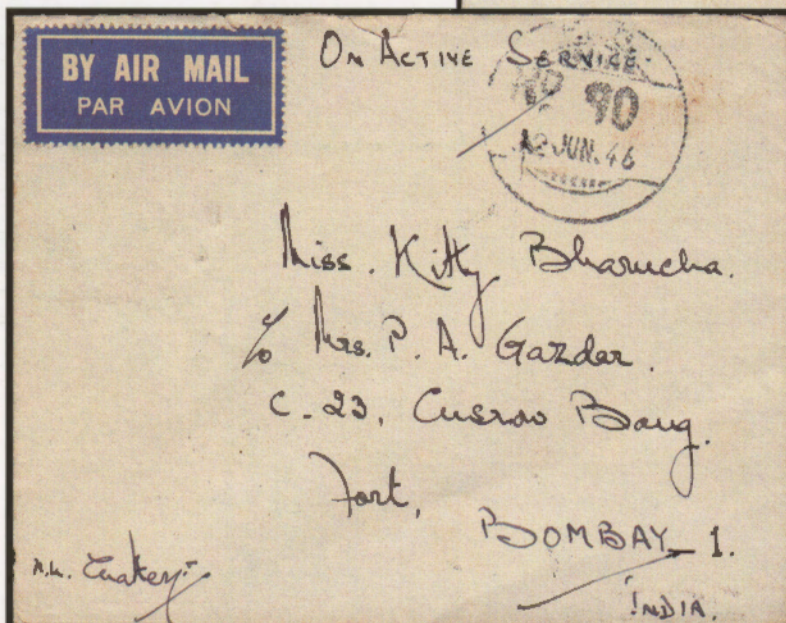 BY AIR MAIL
PAR AVION
On Active Service.
90
12 JUN. 46
Miss. Kitty Bharucha.
c/o Mrs. P. A. Gazder.
C-23, Cusrow Baug.
Fort,
BOMBAY_1.
INDIA.